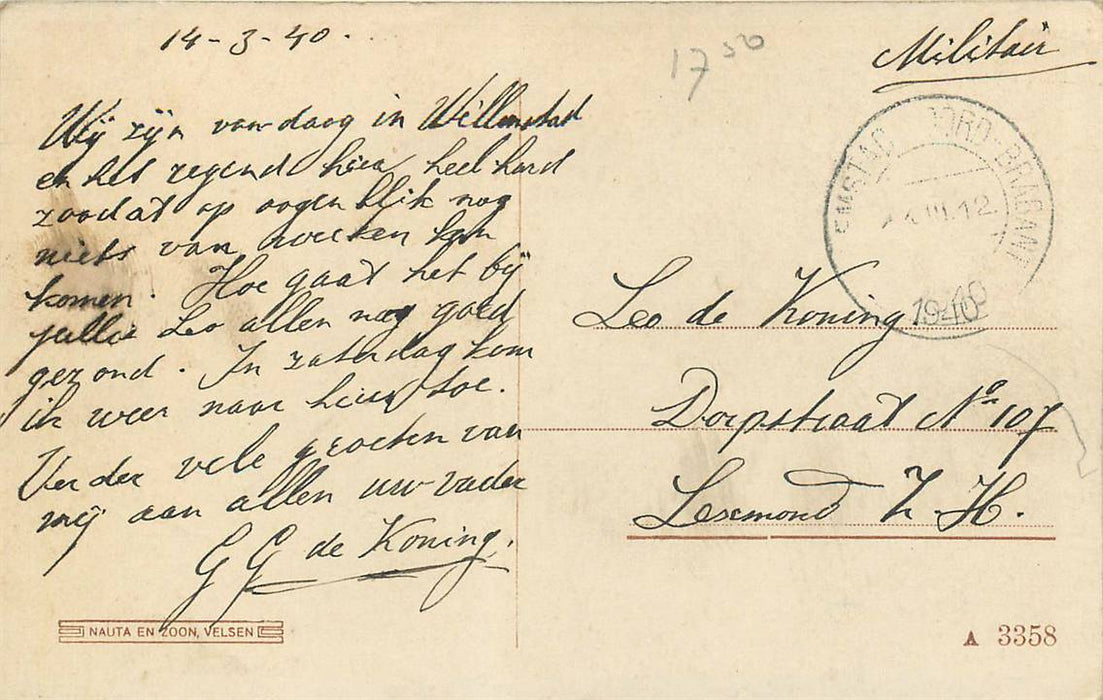 14-3-40.
17 50
Militair
Wij zijn vandaag in Willemstad
en het regend hier heel hard
zoodat op oogenblik nog
niets van werken kan
komen. Hoe gaat het bij
jullie Leo allen nog goed
gezond. In zaterdag kom
ik weer naar huis toe.
Verder vele groeten van
mij aan allen uw vader
G G de Koning.
EMSTAD NOORD-BRABANT
III.12
1940
Leo de Koning.
Dorpstraat No 107
Lexmond Z.H.
NAUTA EN ZOON, VELSEN
A 3358